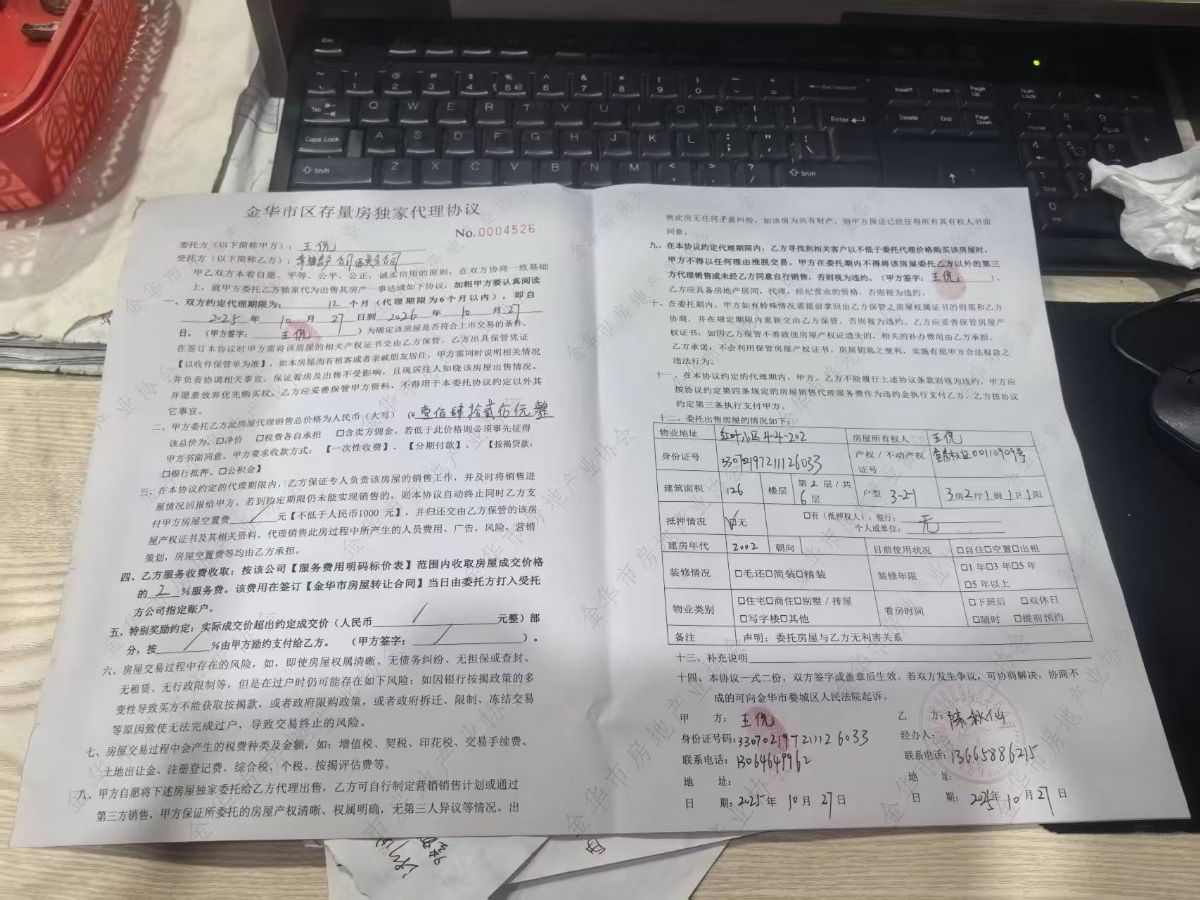 金华市区存量房独家代理协议
No.0004526
委托方（以下简称甲方）：王倪
受托方（以下简称乙方）：
甲乙双方本着自愿、平等、公平、公正、诚实信用的原则，在双方协商一致基础
上，就甲方委托乙方独家代为出售其房产一事达成如下协议，加粗甲方要认真阅读
一、双方约定代理期限为：12 个月（代理期限为6个月以内），即自
2025 年 10 月 27 日到 2026 年 10 月 27
日。（甲方签字：王倪）为确定该房屋是否符合上市交易的条件，
在签订本协议时甲方需将该房屋的相关产权证书交由乙方保管，乙方出具保管凭证
【以收件保管单为准】，如本房屋尚有租客或者亲戚朋友居住，甲方需同时说明相关情况
并负责协调相关事宜，保证看房及出售不受影响，且现居住人知晓该房屋出售情况，
并愿意放弃优先购买权。乙方应妥善保管甲方资料，不得用于本委托协议约定以外其
它事宜。
二、甲方委托乙方此房屋代理销售总价格为人民币（大写）（¥ 壹佰肆拾贰万元整
该总价为：□净价 □税费各自承担 □含卖方佣金。若低于此价格则必须事先征得
甲方书面同意。甲方要求收款方式：【一次性收费】、【分期付款】、【按揭贷款：
□银行抵押、□公积金】
三、在本协议约定的代理期限内，乙方保证专人负责该房屋的销售工作，并及时将销售进
展情况回报给甲方。若到约定期限仍未能实现销售的，则本协议自动终止同时乙方支
付甲方房屋空置费 / 元【不低于人民币1000 元】，并归还交由乙方保管的该房
屋产权证书及其相关资料。代理销售此房过程中所产生的人员费用、广告，风险，营销
策划，房屋空置费等均由乙方承担。
四、乙方服务收费收取：按该公司【服务费用明码标价表】范围内收取房屋成交价格
的 2 %服务费。该费用在签订【金华市房屋转让合同】当日由委托方打入受托
方公司指定账户。
五、特别奖励约定：实际成交价超出约定成交价（人民币 / 元整）部
分，按 / %由甲方励约支付给乙方。（甲方签字： / ）。
六、房屋交易过程中存在的风险，如，即使房屋权属清晰、无债务纠纷、无担保或查封、
无租赁、无行政限制等，但是在过户时仍可能存在如下风险：如因银行按揭政策的多
变性导致买方不能获取按揭款，或者政府限购政策，或者政府拆迁、限制、冻结交易
等原因致使无法完成过户，导致交易终止的风险。
七、房屋交易过程中会产生的税费种类及金额，如：增值税、契税、印花税、交易手续费、
土地出让金、注册登记费、综合税、个税、按揭评估费等。
八、甲方自愿将下述房屋独家委托给乙方代理出售，乙方可自行制定营销销售计划或通过
第三方销售，甲方保证所委托的房屋产权清晰、权属明确，无第三人异议等情况。出
售此房无任何矛盾纠纷，如该房为共有财产，则甲方保证已经征得所有其有权人书面
同意。
九、在本协议约定代理期限内，乙方寻找到相关客户以不低于委托代理价格购买该房屋时，
甲方不得以任何理由推脱交易，甲方在委托期内不得将该房屋委托乙方以外的第三
方代理销售或未经乙方同意自行销售，否则视为违约。（甲方签字：王倪）。
乙方应具备房地产居间、代理、经纪营业的资格，否则视为违约。
十、在委托期内，甲方如有特殊情况需提前拿回由乙方保管之房屋权属证书的则需和乙方
协商，并在规定期限内重新交由乙方保管，否则视为违约。乙方应妥善保管房屋产
权证书，如因乙方保管不善致使房屋产权证遗失的，相关的补办费用由乙方承担。
乙方承诺：不会利用保管房屋产权证书、房屋钥匙之便利，实施有损甲方合法权益之
违法行为。
十一、在本协议约定的代理期内，甲方、乙方不能履行上述协议条款则视为违约，甲方应
按协议约定第四条规定的房屋销售代理服务费作为违约金执行支付乙方。乙方按协议
约定第三条执行支付甲方。
十二、委托出售房屋的情况如下：
物业地址 红叶小区4-4-202 房屋所有权人 王倪
身份证号 330702197211126033 产权/不动产权证号 00110909号
建筑面积 126 楼层 第2层/共6层 户型 3-21 3房2厅1厨1卫1阳
抵押情况 ☑无 □有（抵押权人）：银行： 个人或单位： 无
建房年代 2002 朝向 目前使用状况 □自住□空置□出租
装修情况 □毛还□简装□精装 装修年限 □1年□3年□5年 □5年以上
物业类别 □住宅□商住□别墅/排屋 □写字楼□其他 看房时间 □下班后 □双休日 □随时 □提前预约
备注 声明：委托房屋与乙方无利害关系
十三、补充说明
十四、本协议一式二份，双方签字或盖章后生效。若双方发生争议，可协商解决，协商不
成的可向金华市婺城区人民法院起诉。
甲 方：王倪
身份证号码：330702197211126033
联系电话：13064649962
地 址：
日 期：2025年 10月 27日
乙 方：
经办人：
联系电话：13665886215
地 址：
日 期：2025年 10月 27日